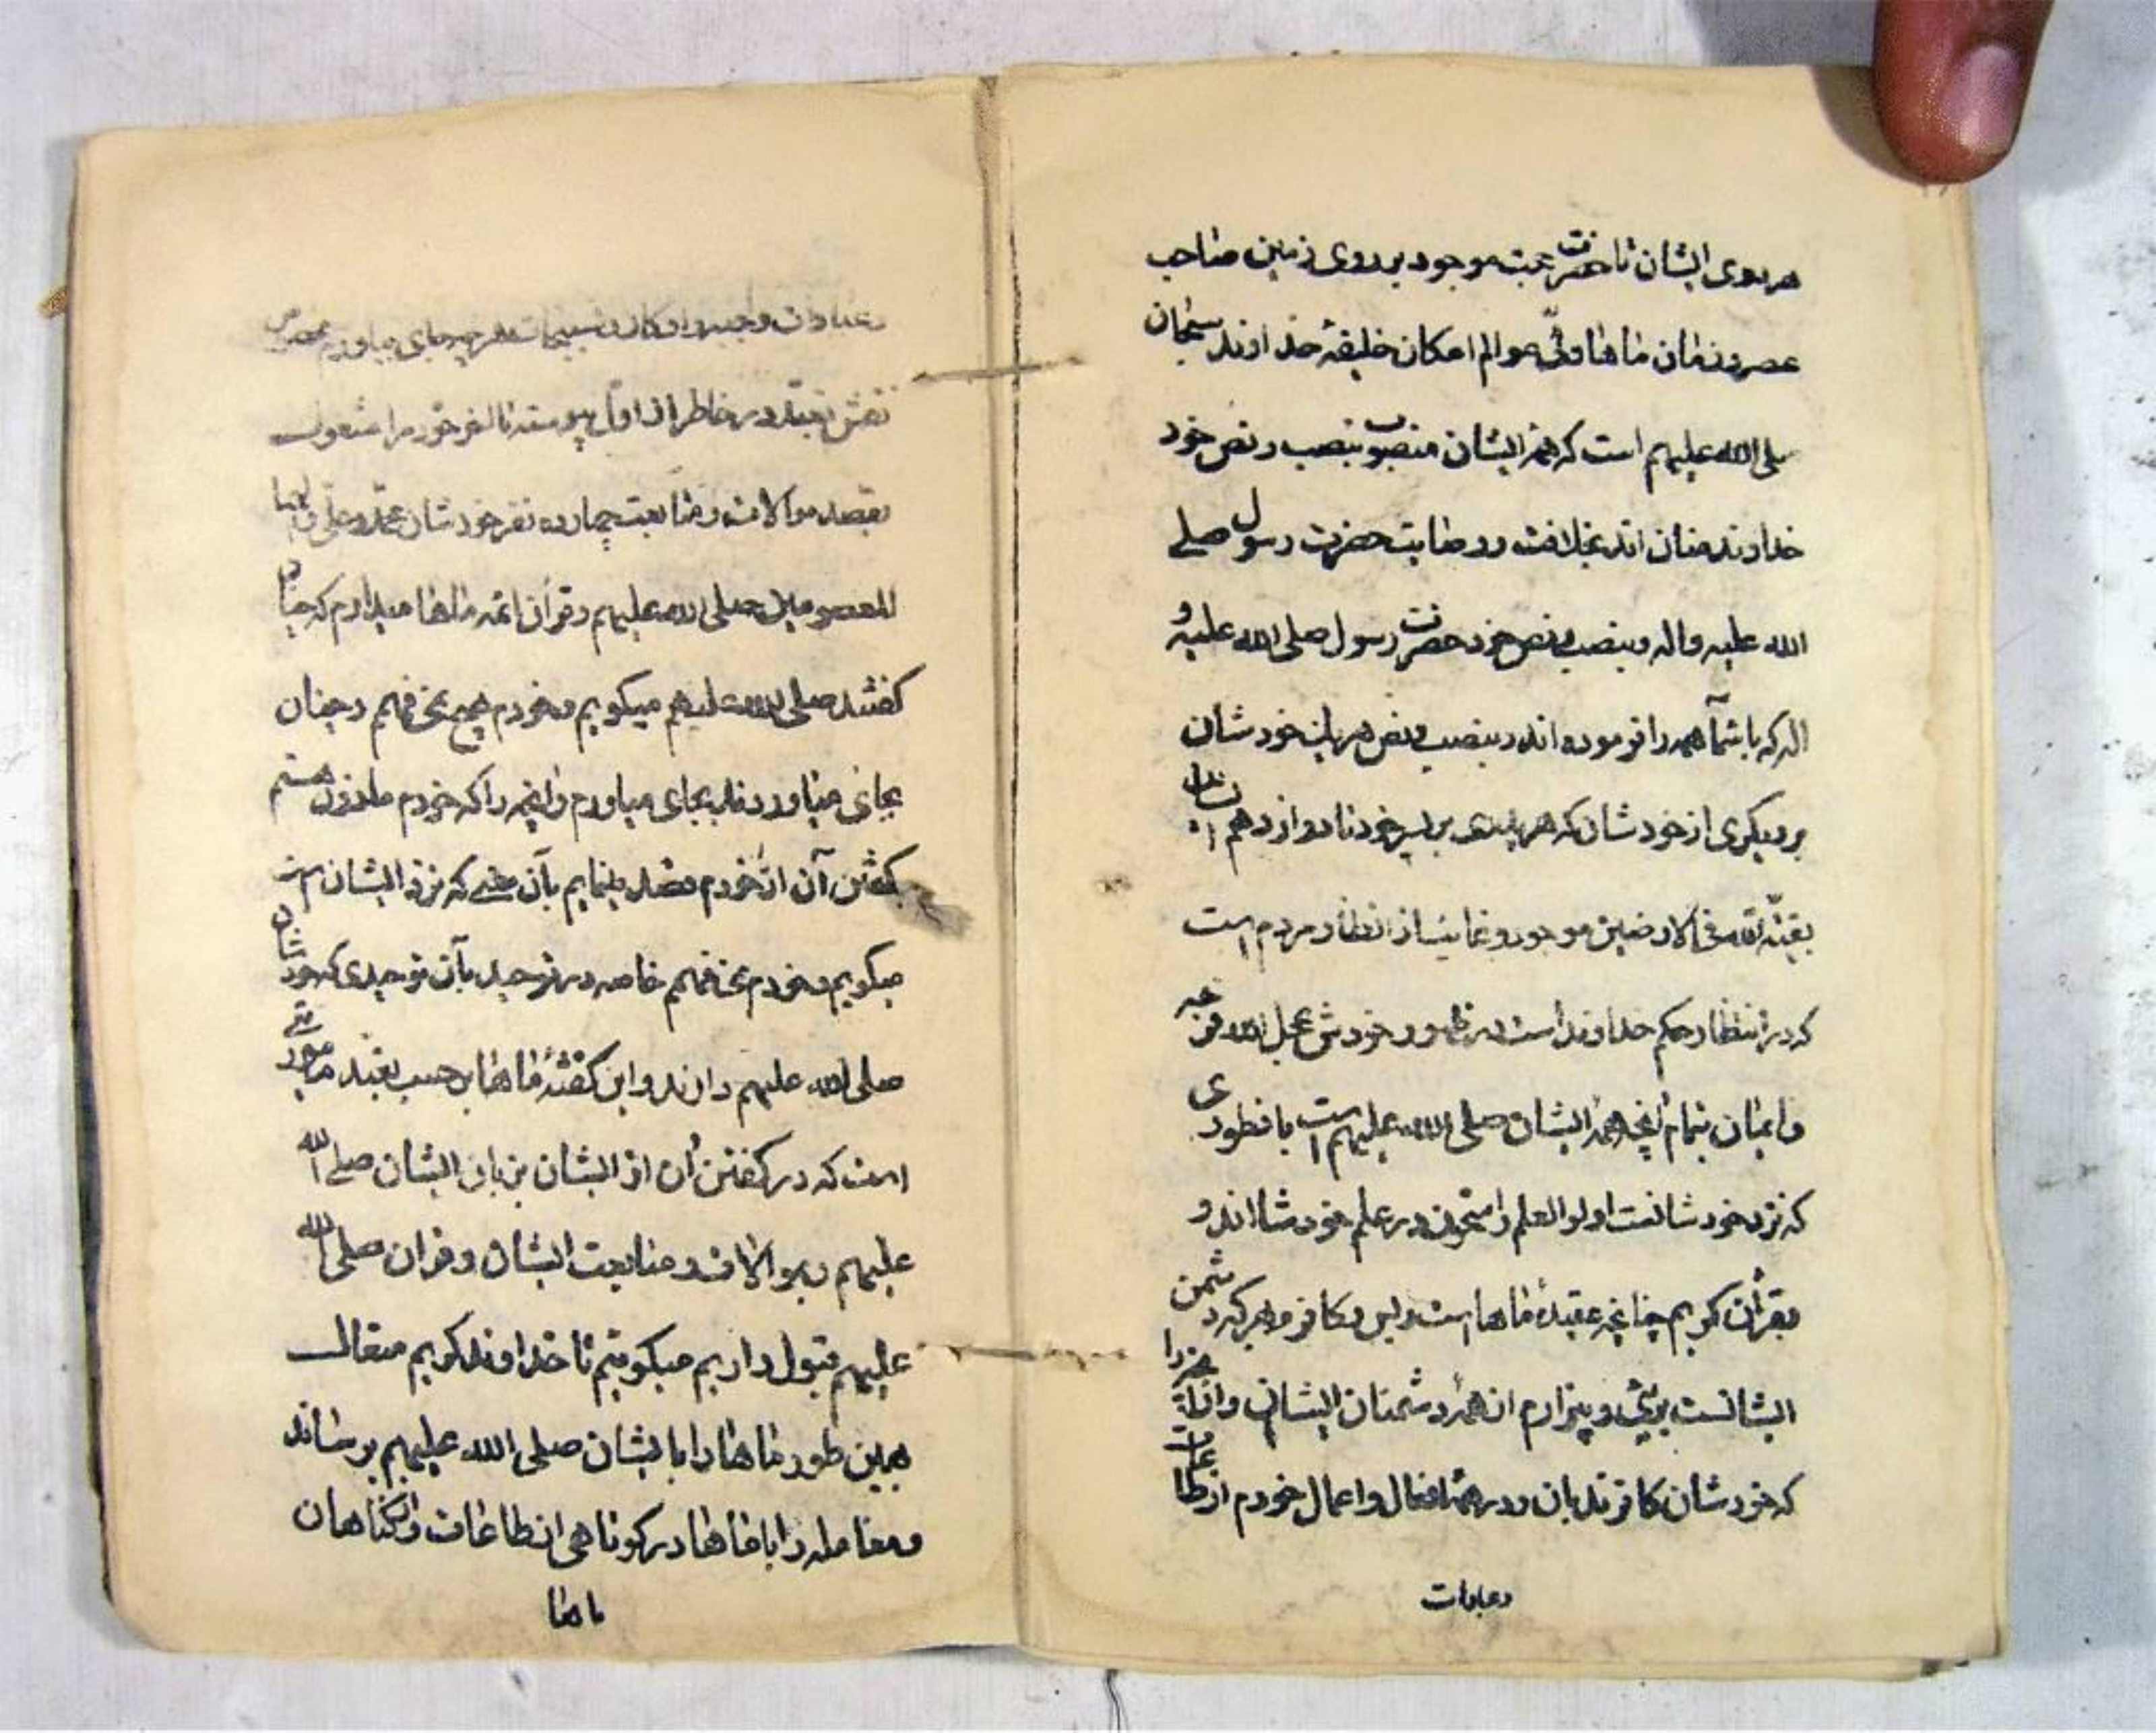 هر یوی ایشان تا حضرت حجت موجود بر روی زمین صاحب
عصر و زمان ماها ولیّ عوالم امکان خلیفهٔ خداوند سبحان
صلی الله علیهم است که همهٔ ایشان منصوب بنصب و نص خود
خداوند منان اند بخلافت و وصایت حضرت رسول صلی
الله علیه واله و بنصب و نص خود حضرت رسول صلی الله علیه و
اله که باشمآ همه را فرموده اند و بنصب و نص هر یک خودشان
بر دیگری از خودشان که هر پدری بر پسر خود تا دوازدهم ایشان
بقیّة الله فی الارضین موجود و غایب از انظار مردم است
که در انتظار حکم خداوند است در ظهور خودش عجل الله فرجه
و ایمان بتمام آنچه همهٔ ایشان صلی الله علیهم است بانطوری
که نزد خودشانست اولوالعلم راسخون در علم خودشان اند و
بقرآن کریم چنانچه عقیدهٔ ماها است و بس و کافرم بهر که دشمن
ایشانست بریّ و بیزارم از همهٔ دشمنان ایشان و
که خودشان کافرند بان و در همهٔ افعال و اعمال خودم از طاعات
وعبادات
وعبادات و اذکار و تسبیحات هر چه بجای میاورم محض
نقش در خاطر از اول پیوسته تا اخر خود را مشغول
بقصد موالات و متابعت چهارده نفر خودشان محمد و علی
المعصومین صلی الله علیهم و قرآن ائمه ماها میدارم که چنان
گفتند صلی الله علیهم میگویم و خودم هیچ نمی فهم و چنان
بجای میاوردند بجای میاورم و آنچه را که خودم ماذون هستم
بگفتن آن از خودم قصد مینمایم بآن معنی که نزد ایشان است
میگویم و خودم نمی فهمم خاصه در توحید بآن توحیدی که خودشان
صلی الله علیهم دارند و این گفتهٔ ماها بر حسب تعبد مامور
است که در گفتن آن از ایشان بزبان ایشان صلی الله
علیهم و بموالات و متابعت ایشان و قران صلی الله
علیهم قبول داریم میگوئیم تا خداوند کریم متعال
بهمین طور ماها را بایشان صلی الله علیهم برساند
و معامله را باماها در کوتاهی از طاعات و گناهان
ماها